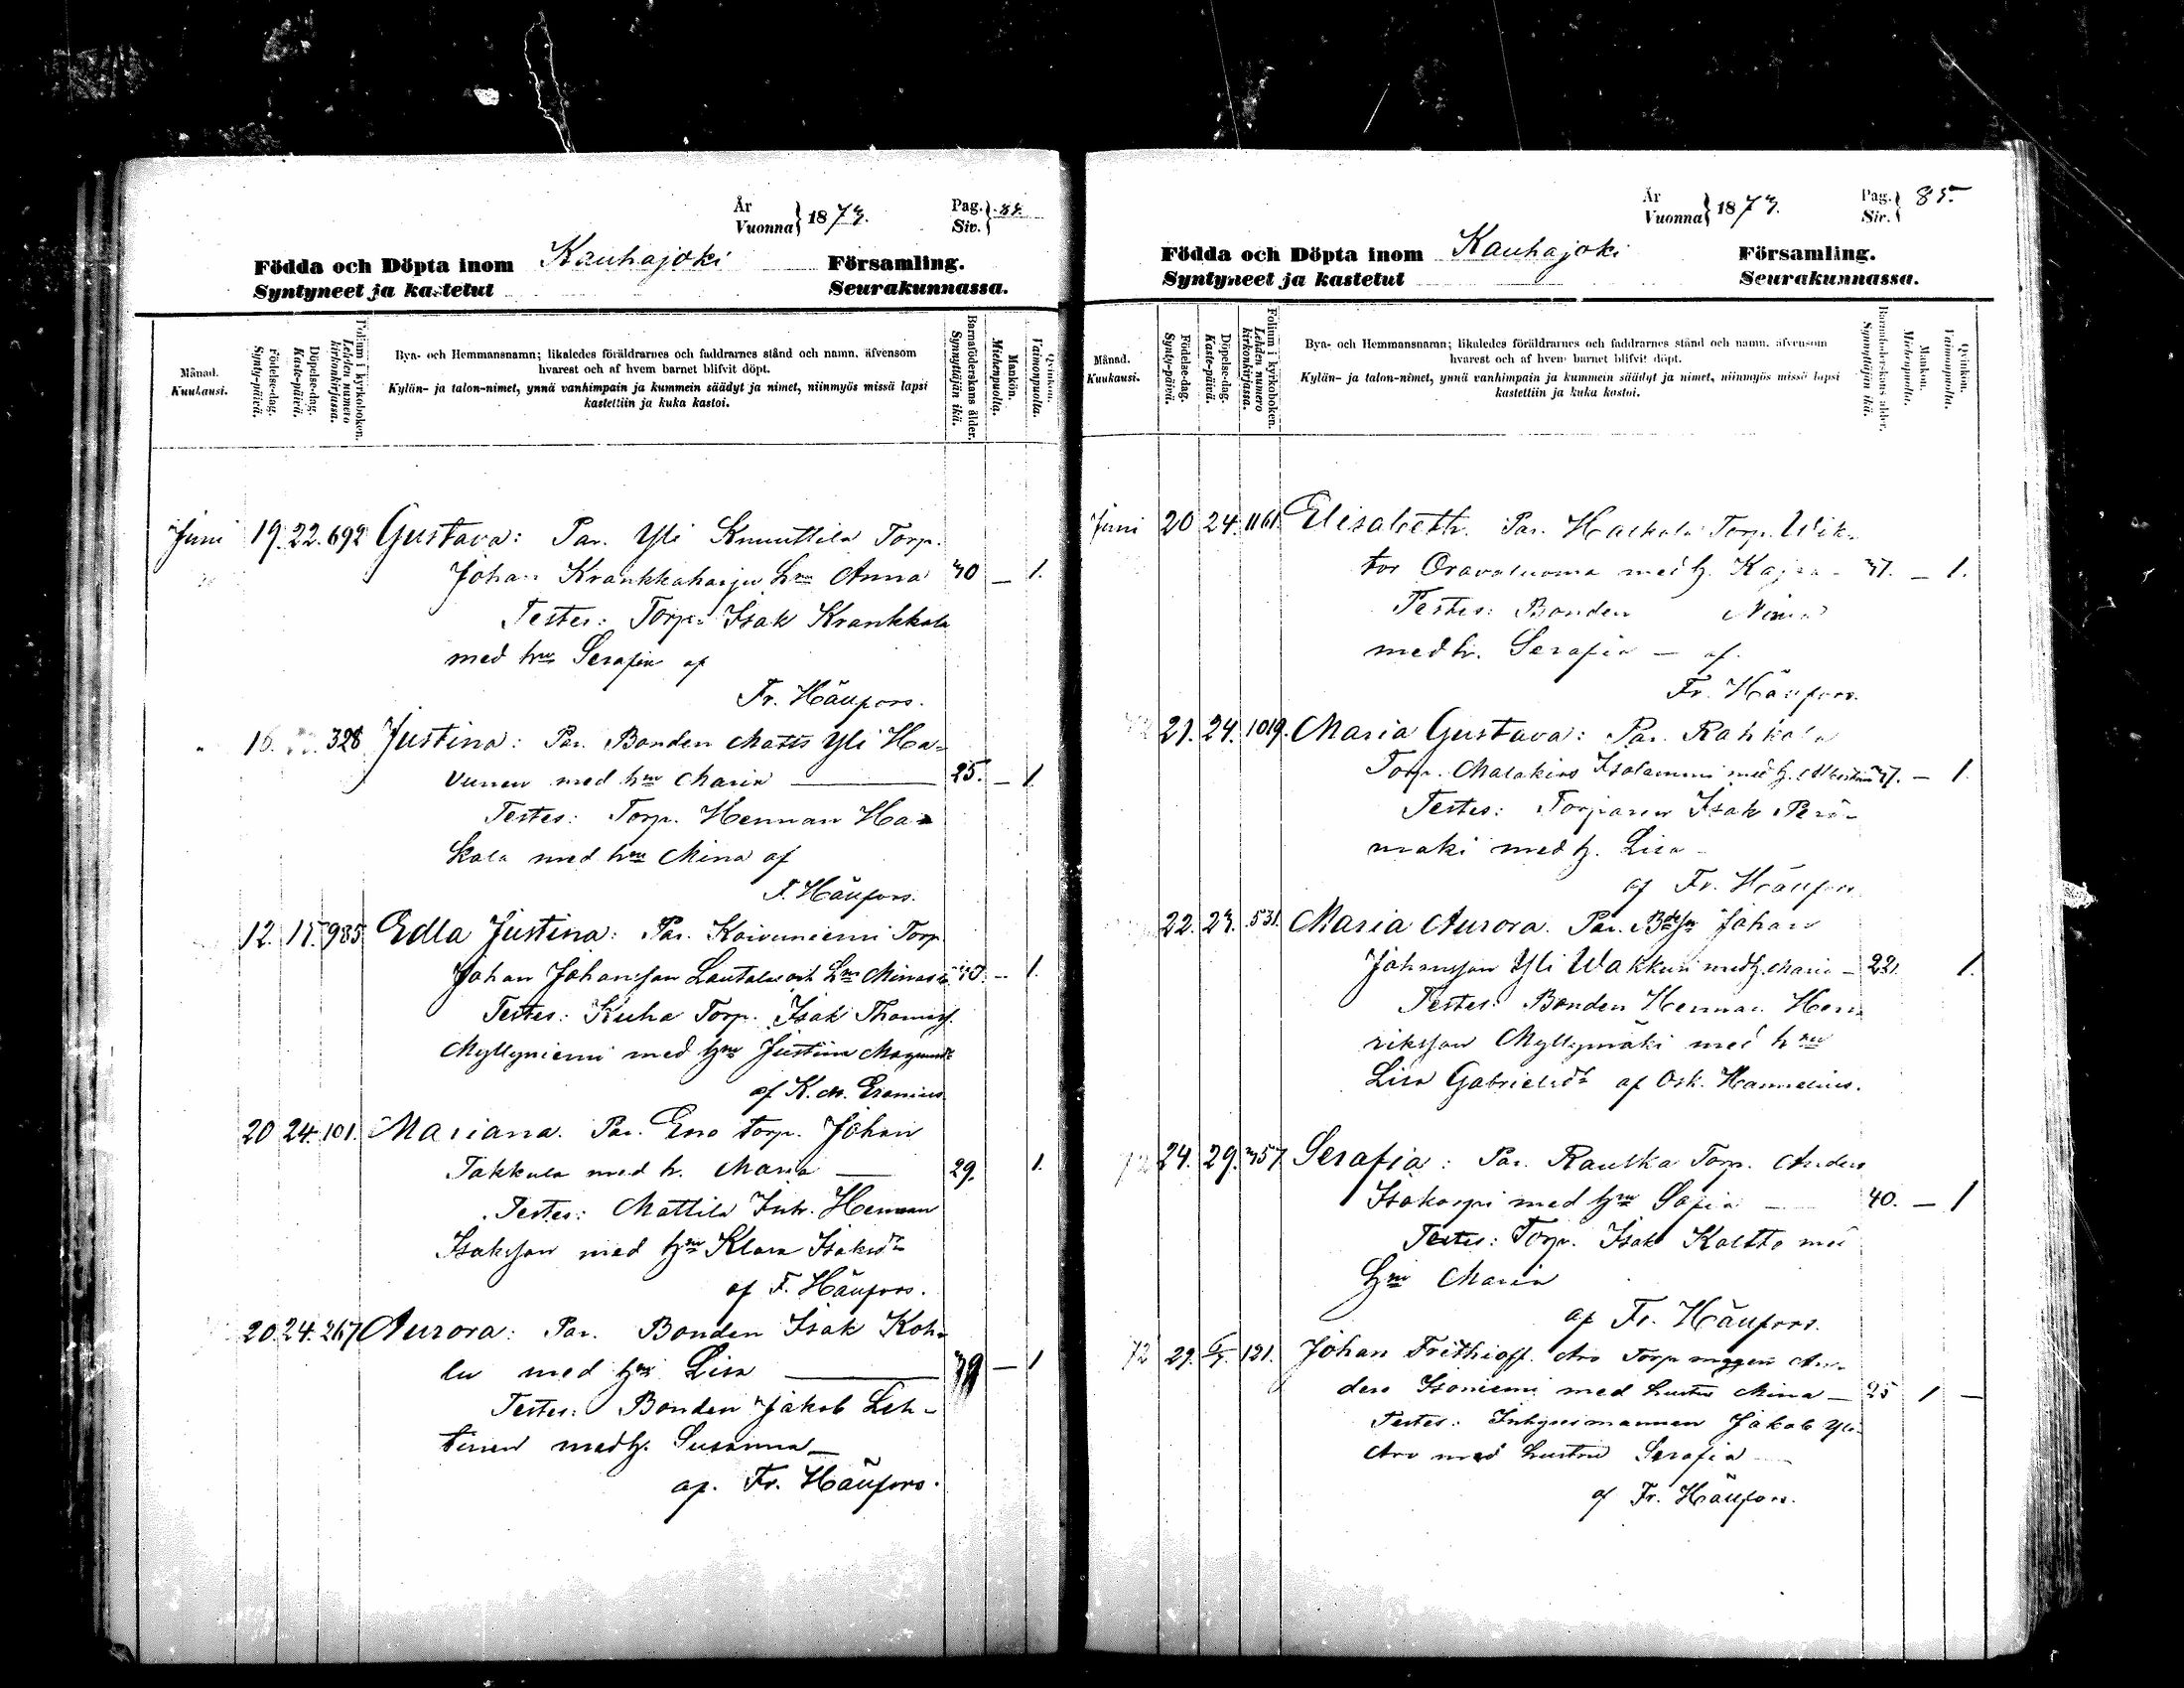 År
Vuonna } 1873.
Pag.
Siv. } 84.
Födda och Döpta inom Kauhajoki Församling.
Syntyneet ja kastetut Seurakunnassa.
Månad.
Kuukausi.
Födelse-dag.
Synty-päivä.
Döpelse-dag.
Kaste-päivä.
Folium i kyrkoboken.
Lehden numero kirkonkirjassa.
Bya- och Hemmansnamn; likaledes föräldrarnes och faddrarnes stånd och namn, äfvensom
hvarest och af hvem barnet blifvit döpt.
Kylän- ja talon-nimet, ynnä vanhimpain ja kummein säädyt ja nimet, niinmyös missä lapsi
kastettiin ja kuka kastoi.
Barnaföderskans ålder.
Synnyttäjän ikä.
Mankön.
Miehenpuolia.
Qvinkön.
Vaimonpuolia.
Juni 19. 22. 692 Gustava: Par. Yli Knuuttila Torp.
Johan Krankkaharju hru Anna 30 — 1.
Testes: Torp. Isak Krankkala
med hru Serafia af
Fr. Häufors.
16. 328 Justina: Par. Bonden Matts Yli Ha-
vunen med hru Maria — 25. — 1.
Testes: Torp. Herman Ha-
kala med hru Mina af
F. Häufors.
12. 15. 985 Edla Justina: Par. Koivuniemi Torp.
Johan Johansson Lautala och hru 30. — 1.
Testes: Kuha Torp. Isak Thomass.
Myllyniemi med hru Justina
af K. M. Eranius
20 24. 101. Mariana. Par. Eno torp. Johan
Takkula med h. Maria — 29. 1.
Testes: Mattila Inh. Herman
Isaksson med hru Klara Isaksdr
af F. Häufors.
20. 24. 267 Aurora: Par. Bonden Isak Koh-
lu med hru Lisa — 39 — 1
Testes: Bonden Jakob Leh-
tinen med h. Susanna —
af. Fr. Häufors.
År
Vuonna } 1873.
Pag.
Siv. } 85.
Födda och Döpta inom Kauhajoki Församling.
Syntyneet ja kastetut Seurakunnassa.
Månad.
Kuukausi.
Födelse-dag.
Synty-päivä.
Döpelse-dag.
Kaste-päivä.
Folium i kyrkoboken.
Lehden numero kirkonkirjassa.
Bya- och Hemmansnamn; likaledes föräldrarnes och faddrarnes stånd och namn, äfvensom
hvarest och af hvem barnet blifvit döpt.
Kylän- ja talon-nimet, ynnä vanhimpain ja kummein säädyt ja nimet, niinmyös missä lapsi
kastettiin ja kuka kastoi.
Barnaföderskans ålder.
Synnyttäjän ikä.
Mankön.
Miehenpuolia.
Qvinkön.
Vaimonpuolia.
Juni 20 24. 1161. Elisabeth. Par. Torp. Wik-
tor Oravaluoma med h. Kajsa — 37. — 1.
Testes: Bonden
med h. Serafia — af
Fr. Häufors.
21. 24. 1019. Maria Gustava: Par. Rahkola
Torp. Malakias Isolammi med h. 37. — 1.
Testes: Torparen Isak Perä-
mäki med h. Lisa —
af Fr. Häufors
22. 23. 531. Maria Aurora. Par. Johan
Johansson Yli Wakkuri med h. Maria — 22. 1.
Testes: Bonden Herman Hen-
riksson Myllymäki med hru
Lisa Gabrielsdr af Osk. Hannelius.
72 24. 29. 357 Serafia: Par. Rauska Torp. Anders
Isokorpi med hru Sofia — 40. — 1
Testes: Torp. Isak Koltto med
hru Maria
af Fr. Häufors.
72 29. 6/7. 121. Johan Frithioff. Aro Torp mågen An-
ders Isoniemi med hustru Mina — 25 1 —
Testes: Inhysimannen Jakob Yli-
Aro med hustru Serafia —
af Fr. Häufors.